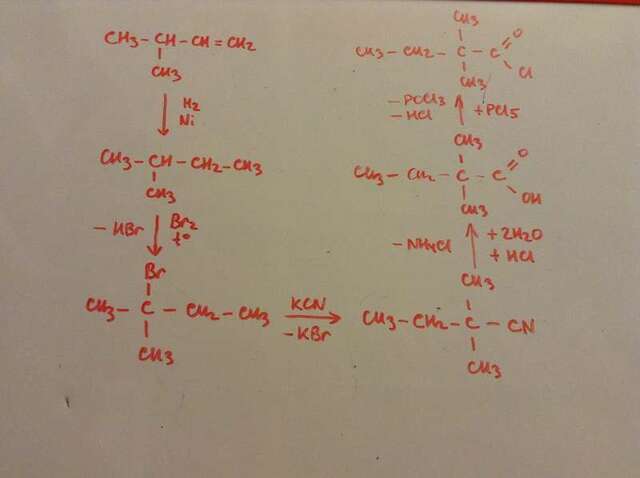 CH3-CH-CH=CH2
CH3
H2
Ni
CH3-CH-CH2-CH3
CH3
-HBr
Br2
t°
Br
CH3-C-CH2-CH3
CH3
KCN
-KBr
CH3
CH3-CH2-C-CN
CH3
-NH4Cl
+2H2O
+HCl
CH3
CH3-CH2-C-C
O
OH
CH3
-POCl3
-HCl
+PCl5
CH3
CH3-CH2-C-C
O
Cl
CH3